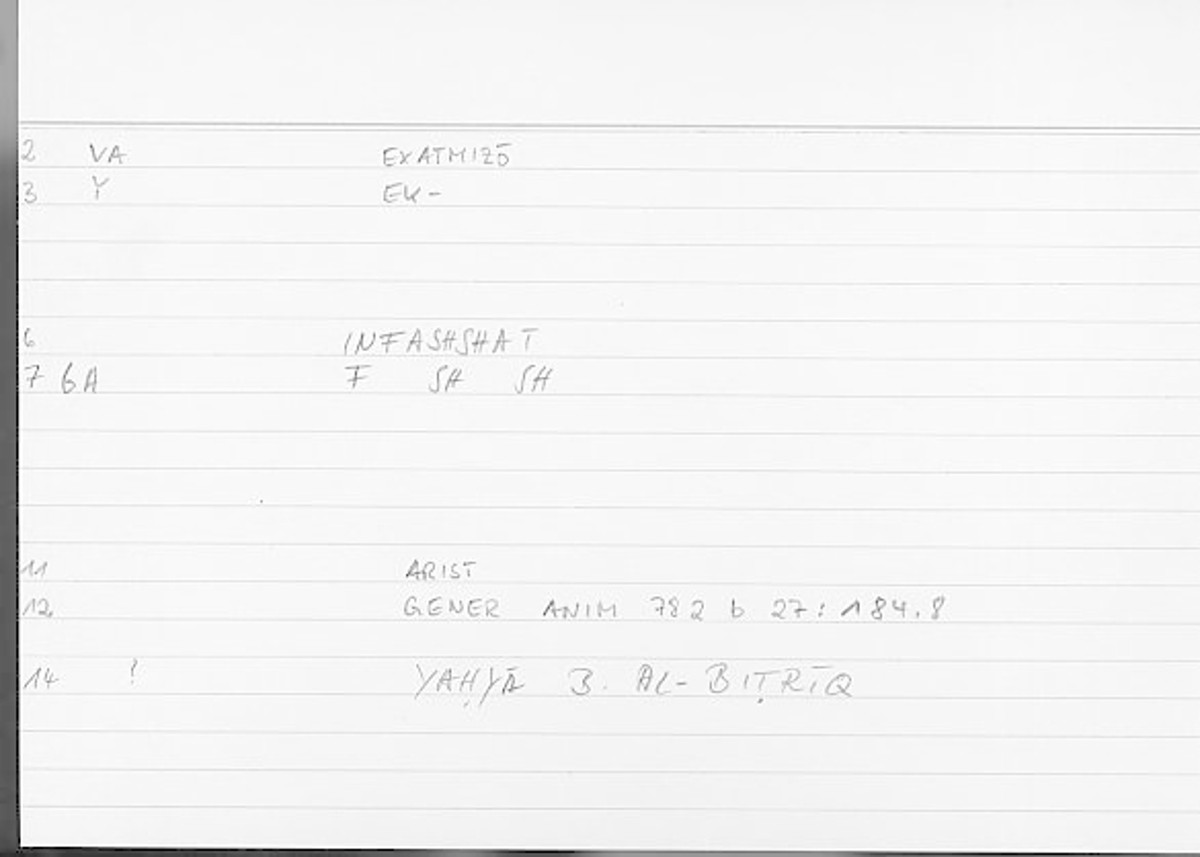 2 VA EXATMIZŌ
3 Y EK-
6 INFASHSHAT
7 6A F SH SH
11 ARIST
12 GENER ANIM 782 b 27 : 184.8
14 ! YAḤYĀ B. AL-BIṬRĪQ